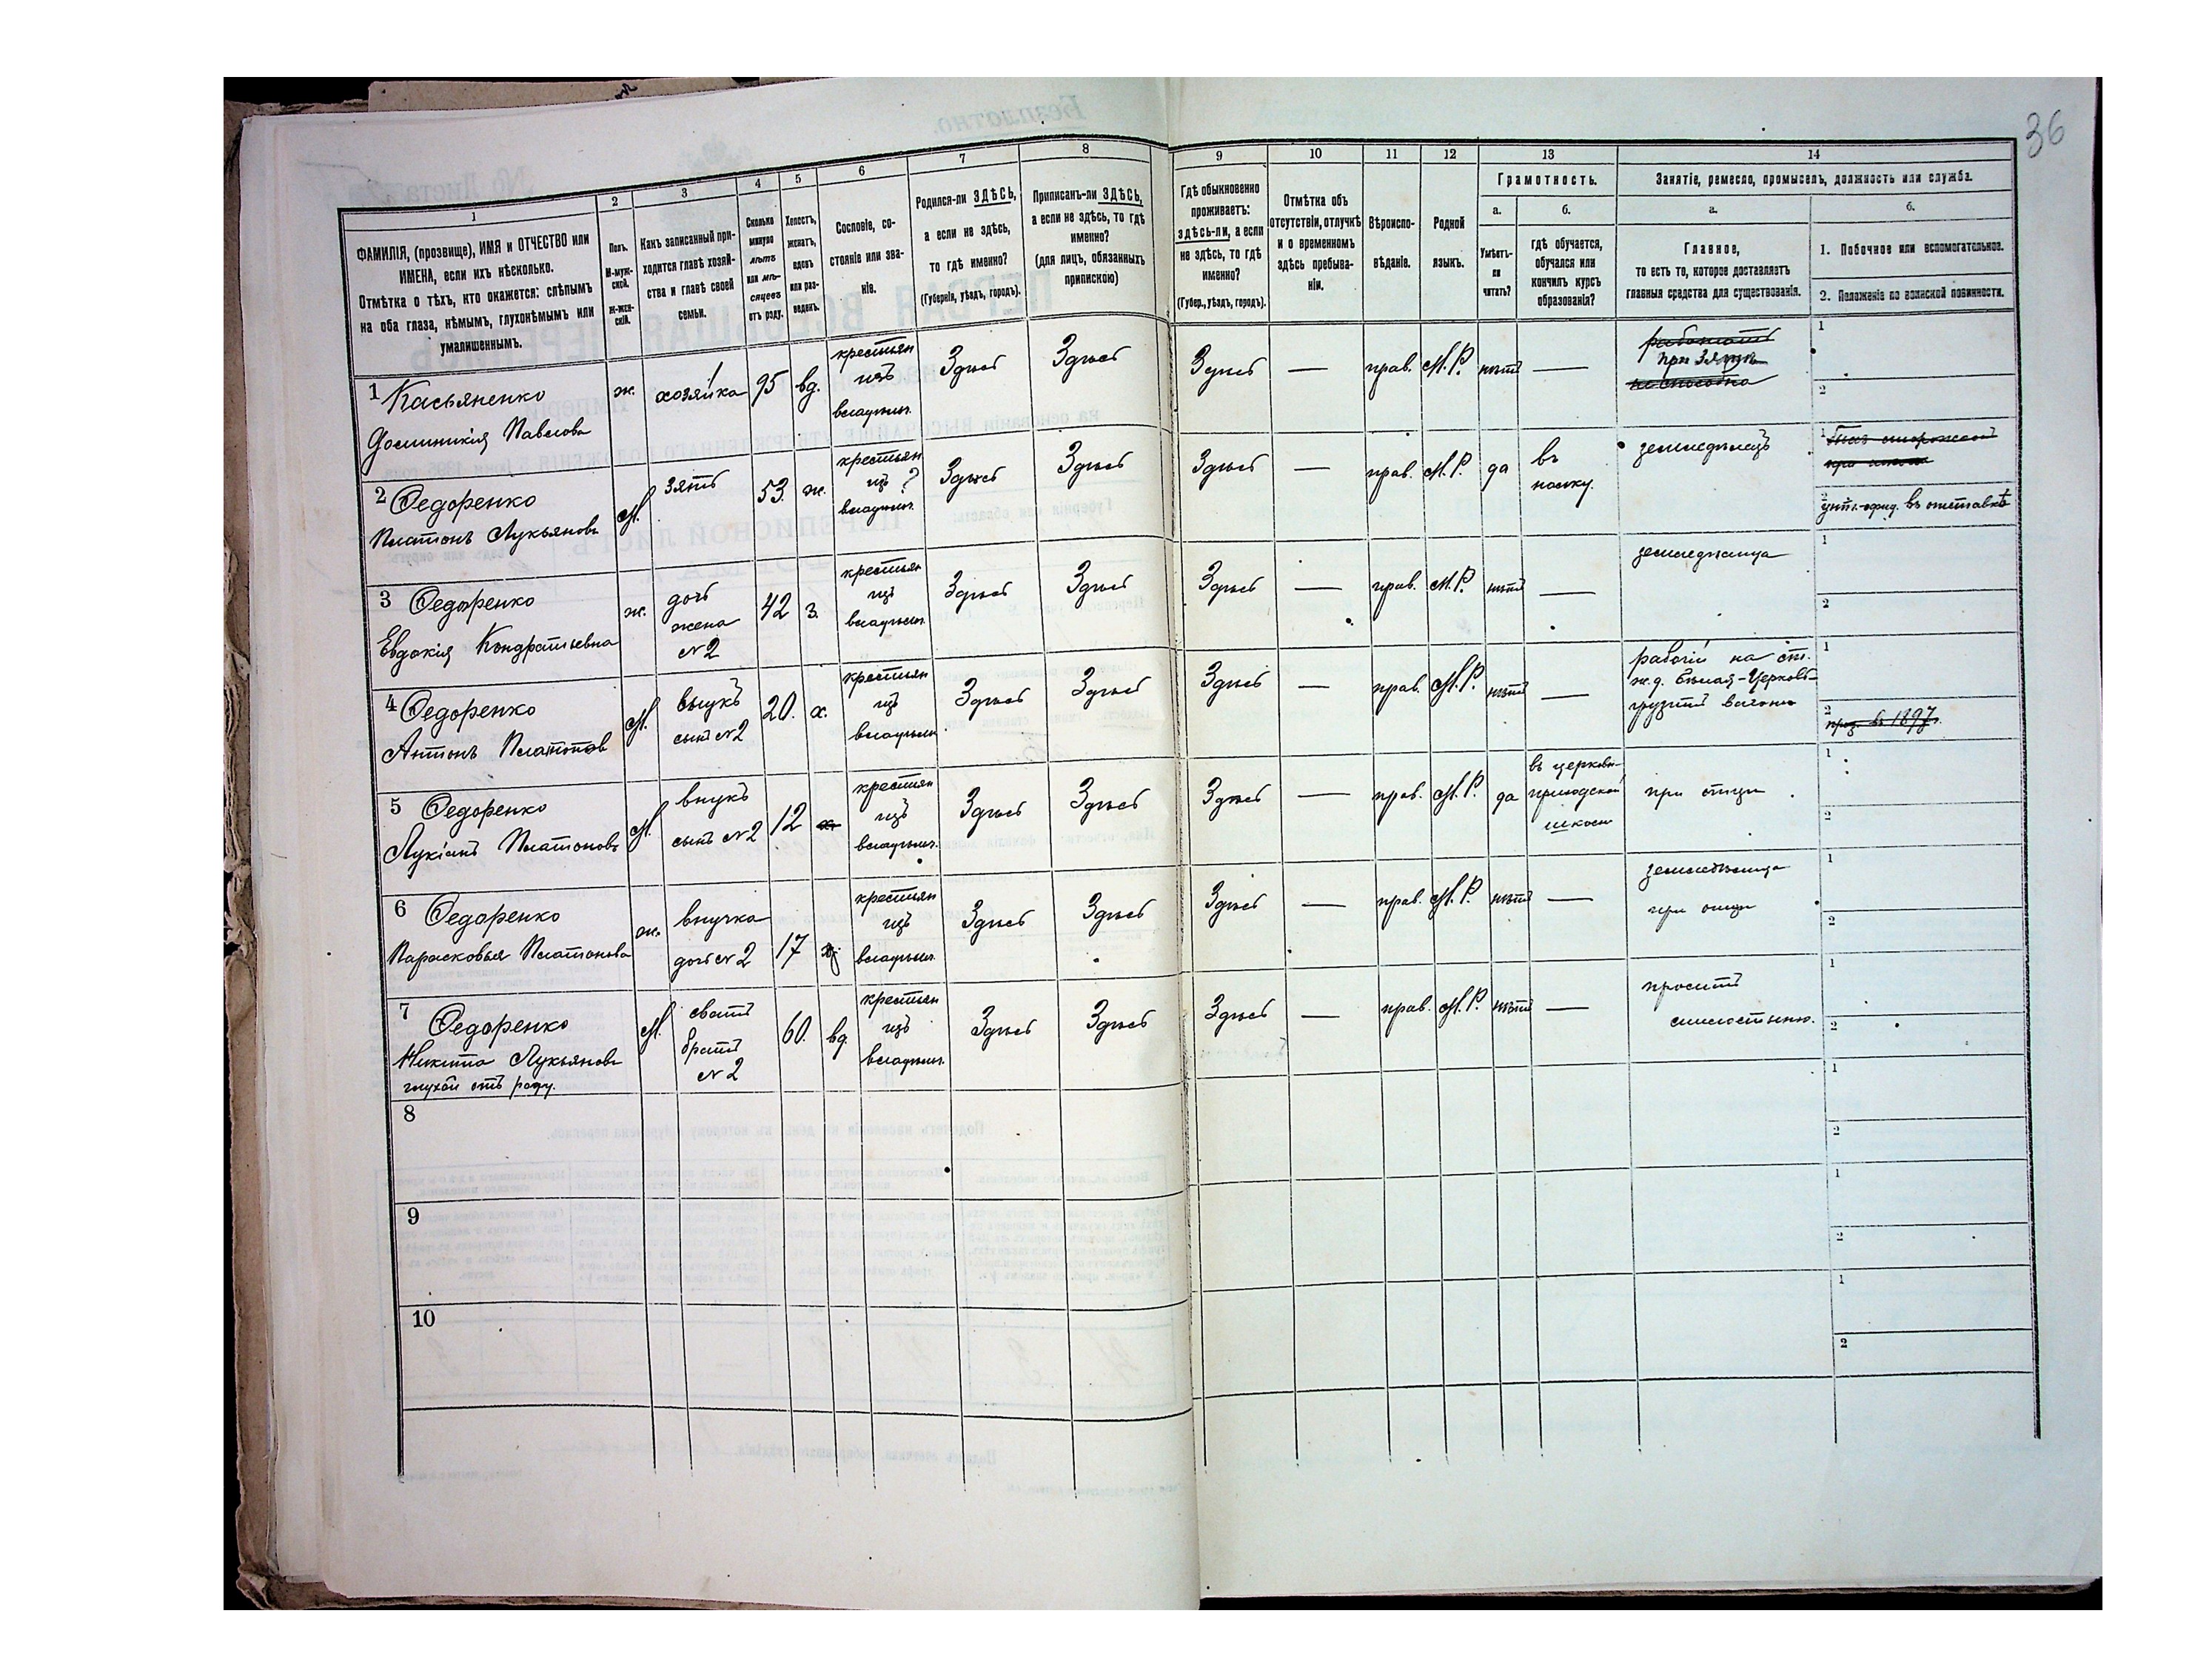 36
1
2
3
4
5
6
7
8
9
10
11
12
13
14
ФАМИЛІЯ, (прозвище), ИМЯ и ОТЧЕСТВО или
ИМЕНА, если ихъ нѣсколько.
Отмѣтка о тѣхъ, кто окажется: слѣпымъ
на оба глаза, нѣмымъ, глухонѣмымъ или
умалишеннымъ.
Полъ.
М-муж-
ской.
ж-жен-
скій.
Какъ записанный при-
ходится главѣ хозяй-
ства и главѣ своей
семьи.
Сколько
минуло
лѣтъ
или мѣ-
сяцевъ
отъ роду.
Холостъ,
женатъ,
вдовъ
или раз-
веденъ.
Сословіе, со-
стояніе или зва-
ніе.
Родился-ли ЗДѢСЬ,
а если не здѣсь,
то гдѣ именно?
(Губернія, уѣздъ, городъ).
Приписанъ-ли ЗДѢСЬ,
а если не здѣсь, то гдѣ
именно?
(для лицъ, обязанныхъ
припискою)
Гдѣ обыкновенно
проживаетъ:
здѣсь-ли, а если
не здѣсь, то гдѣ
именно?
(Губер., уѣздъ, городъ).
Отмѣтка объ
отсутствіи, отлучкѣ
и о временномъ
здѣсь пребыва-
ніи.
Вѣроиспо-
вѣданіе.
Родной
языкъ.
Грамотность.
а.
б.
Умѣетъ-
ли
читать?
гдѣ обучается,
обучался или
кончилъ курсъ
образованія?
Занятіе, ремесло, промыселъ, должность или служба.
а.
б.
Главное,
то есть то, которое доставляетъ
главныя средства для существованія.
1. Побочное или вспомогательное.
2. Положеніе по воинской повинности.
1 Касьяненко
Павлова
ж.
хозяйка
95
вд.
крестьян
изъ
владѣльч.
Здѣсь
Здѣсь
Здѣсь
—
прав.
М.Р.
нѣтъ
—
работаетъ
при зятѣ
неспособна
1
2
2 Федоренко
Платонъ Лукьяновъ
М.
зять
53
ж.
крестьян
изъ ?
владѣльч.
Здѣсь
Здѣсь
Здѣсь
—
прав.
М.Р.
да
въ
полку.
земледѣлецъ
1
2
унт.-офиц. въ отставкѣ
3 Федоренко
Евдокія Кондратьевна
ж.
дочь
жена
№2
42
з.
крестьян
изъ
владѣльч.
Здѣсь
Здѣсь
Здѣсь
—
прав.
М.Р.
нѣтъ
—
земледѣлица
1
2
4 Федоренко
Антонъ Платоновъ
М.
внукъ
сынъ №2
20.
х.
крестьян
изъ
владѣльч.
Здѣсь
Здѣсь
Здѣсь
—
прав.
М.Р.
нѣтъ
—
рабочій на ст.
ж.д. Бѣлая-Церковь
грузитъ вагоны
1
2
приз. въ 1897 г.
5 Федоренко
Лукіанъ Платоновъ
М.
внукъ
сынъ №2
12
х.
крестьян
изъ
владѣльч.
Здѣсь
Здѣсь
Здѣсь
—
прав.
М.Р.
да
въ церковн-
приходской
школѣ
при отцѣ
1
2
6 Федоренко
Парасковья Платонова
ж.
внучка
дочь №2
17
крестьян
изъ
владѣльч.
Здѣсь
Здѣсь
Здѣсь
—
прав.
М.Р.
нѣтъ
—
земледѣлица
при отцѣ
1
2
7 Федоренко
Никита Лукьяновъ
глухой отъ роду.
М.
сватъ
братъ
№2
60.
вд.
крестьян
изъ
владѣльч.
Здѣсь
Здѣсь
Здѣсь
—
прав.
М.Р.
нѣтъ
—
проситъ
милостыню.
1
2
8
1
2
9
1
2
10
1
2